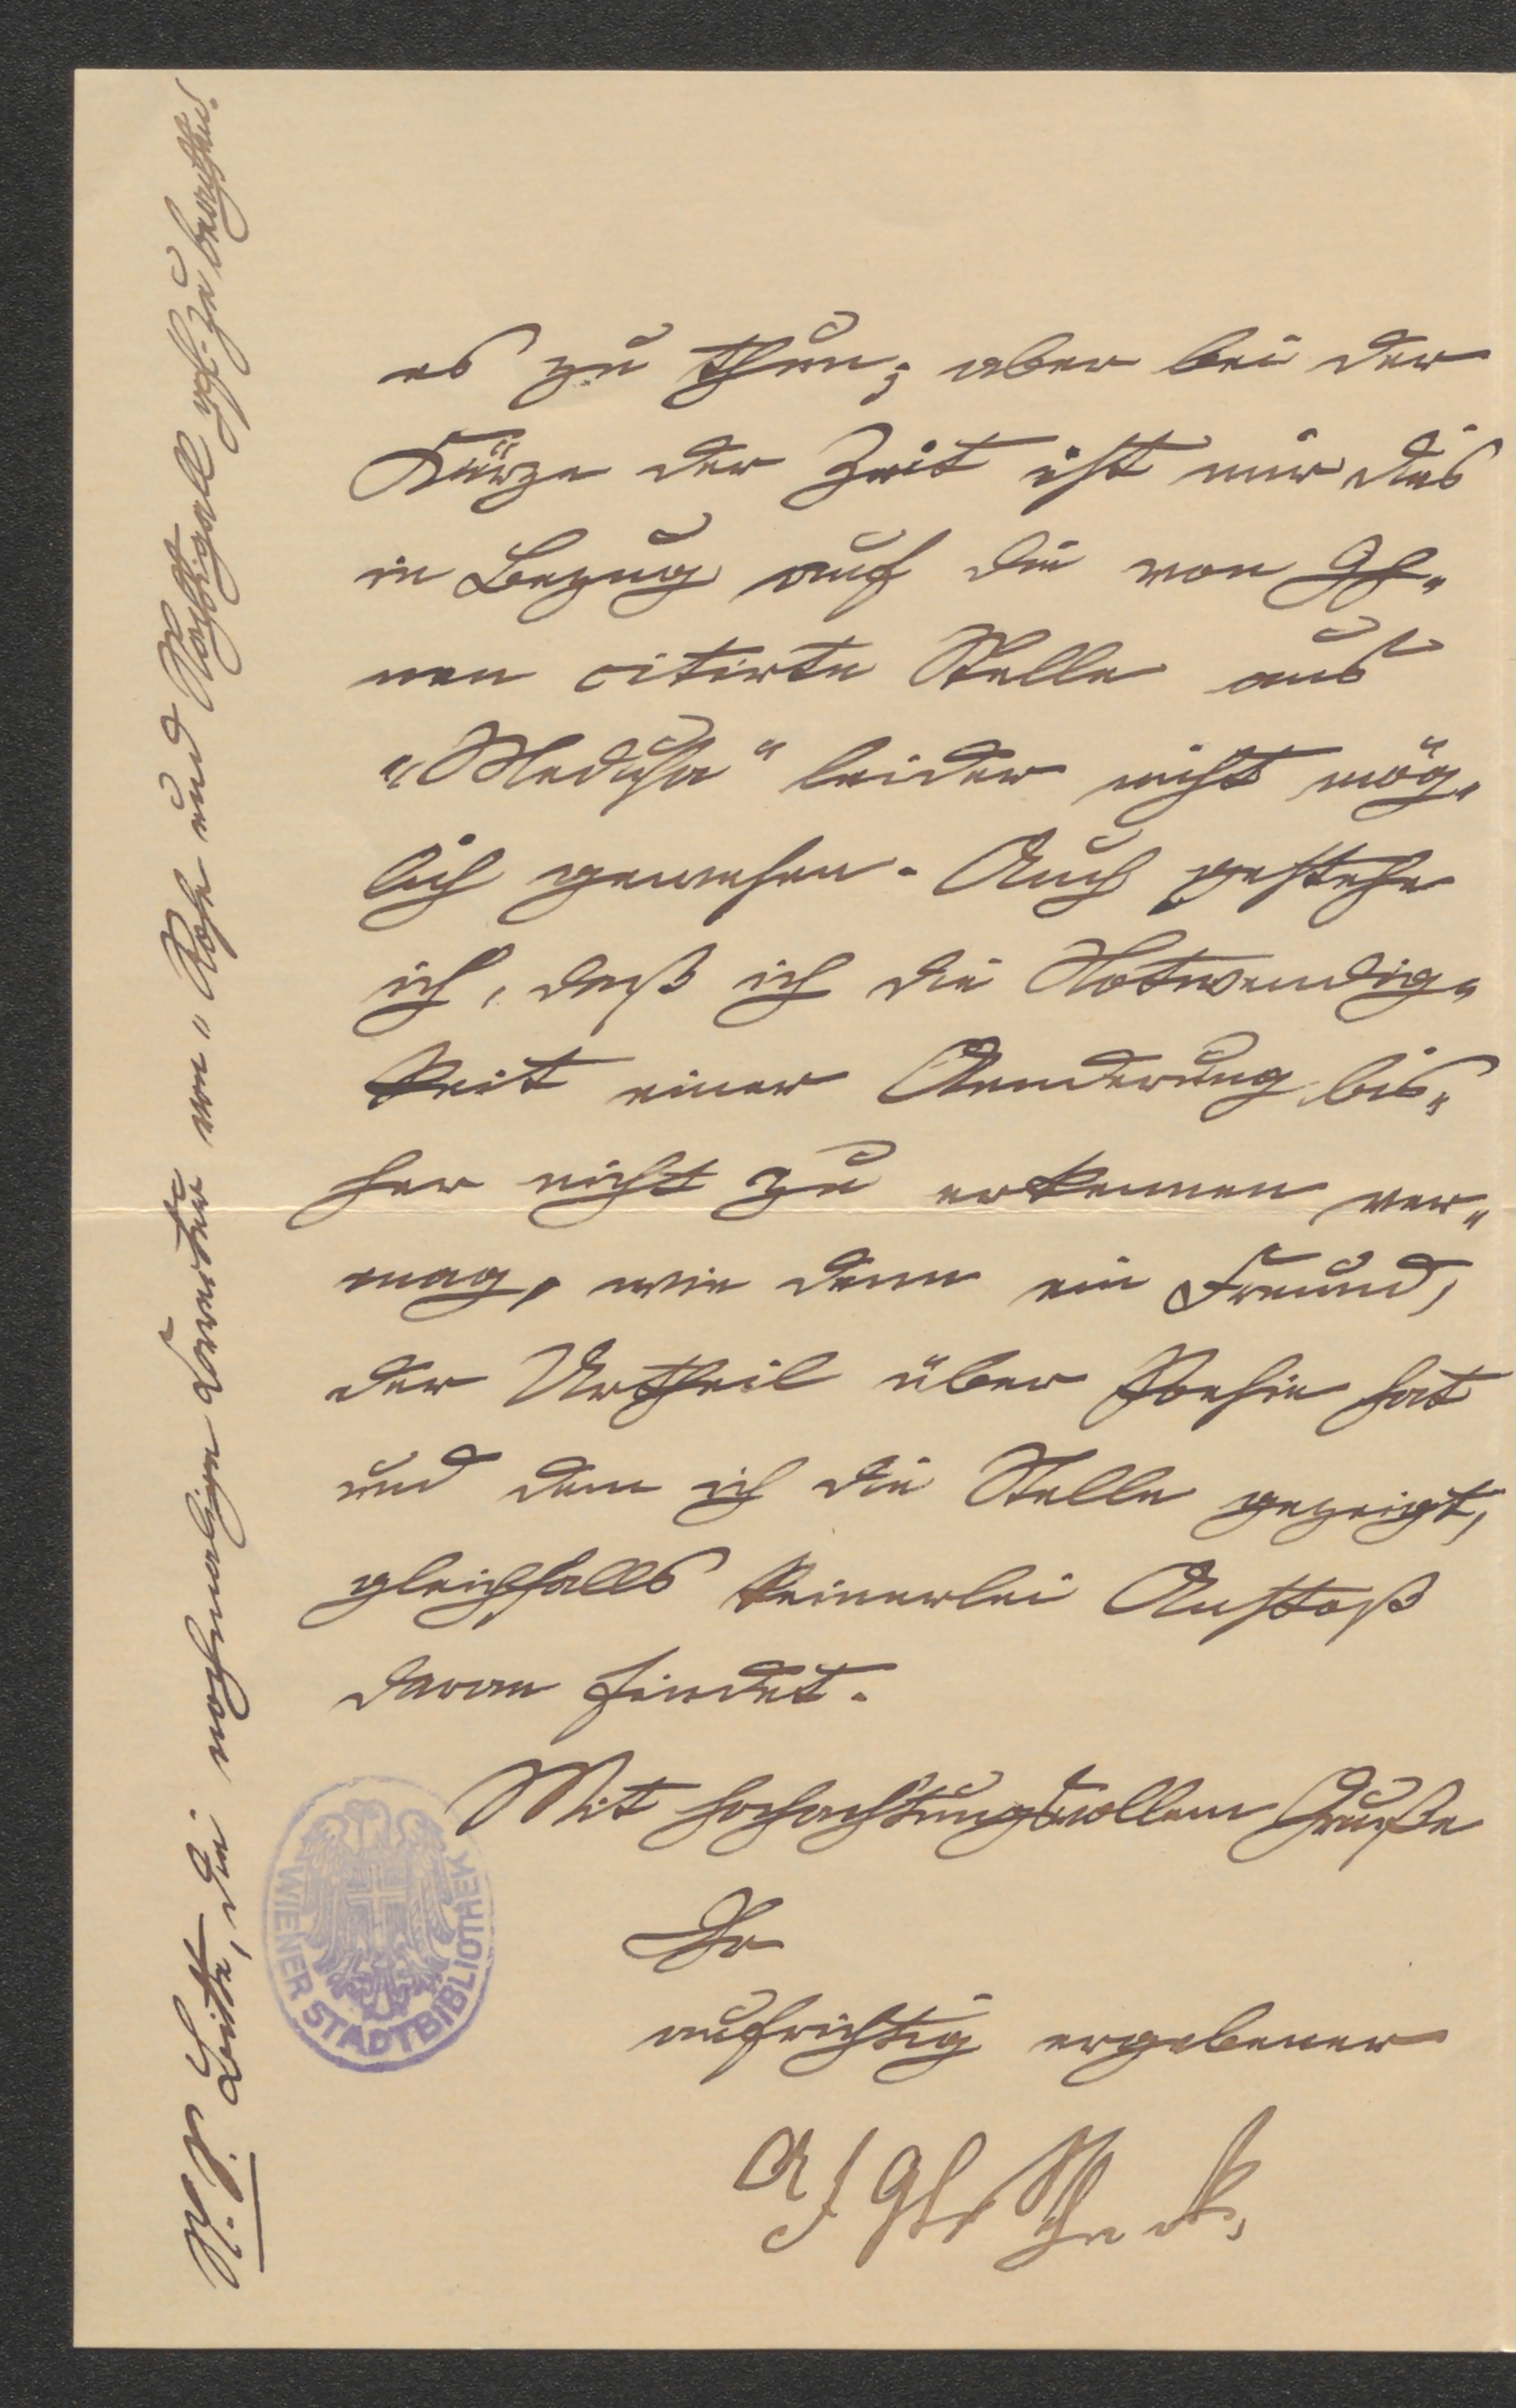 es zu thun; aber bei der
Kürze der Zeit ist mir dies
in Bezug auf die von Ih-
nen citirte Stelle aus
„Medusa“ leider nicht mög-
lich gewesen. Auch gestehe
ich, daß ich die Notwendig-
keit einer Aenderung bis-
her nicht zu erkennen ver-
mag, wie denn ein Freund,
der Urtheil über Poesie hat
und dem ich die Stelle gezeigt,
gleichfalls keinerlei Anstoß
daran findet.
Mit hochachtungsvollem Gruße
Ihr
aufrichtig ergebener
A f Gf v Schack
N. S. Bitte, die nochmalige Correctur von „Rose und Nachtigall gefl. zu beachten.
WIENER STADTBIBLIOTHEK